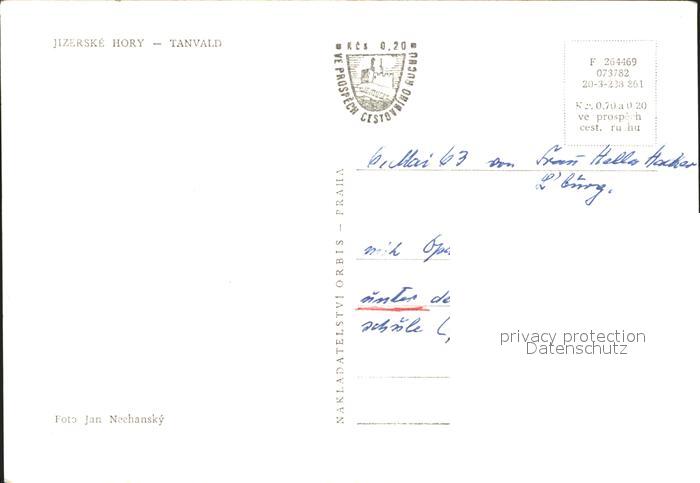 JIZERSKÉ HORY — TANVALD
Kčs 0,20
VE PROSPĚCH CESTOVNÍHO RUCHU
F 264469
073782
20-3-238 861
Kčs 0,70 a 0,20
ve prospěch
cest. ruchu
6. Mai 63 von Frau Hella
L'burg.
NAKLADATELSTVÍ ORBIS — PRAHA
unter de
schule (
privacy protection
Datenschutz
Foto Jan Nechanský